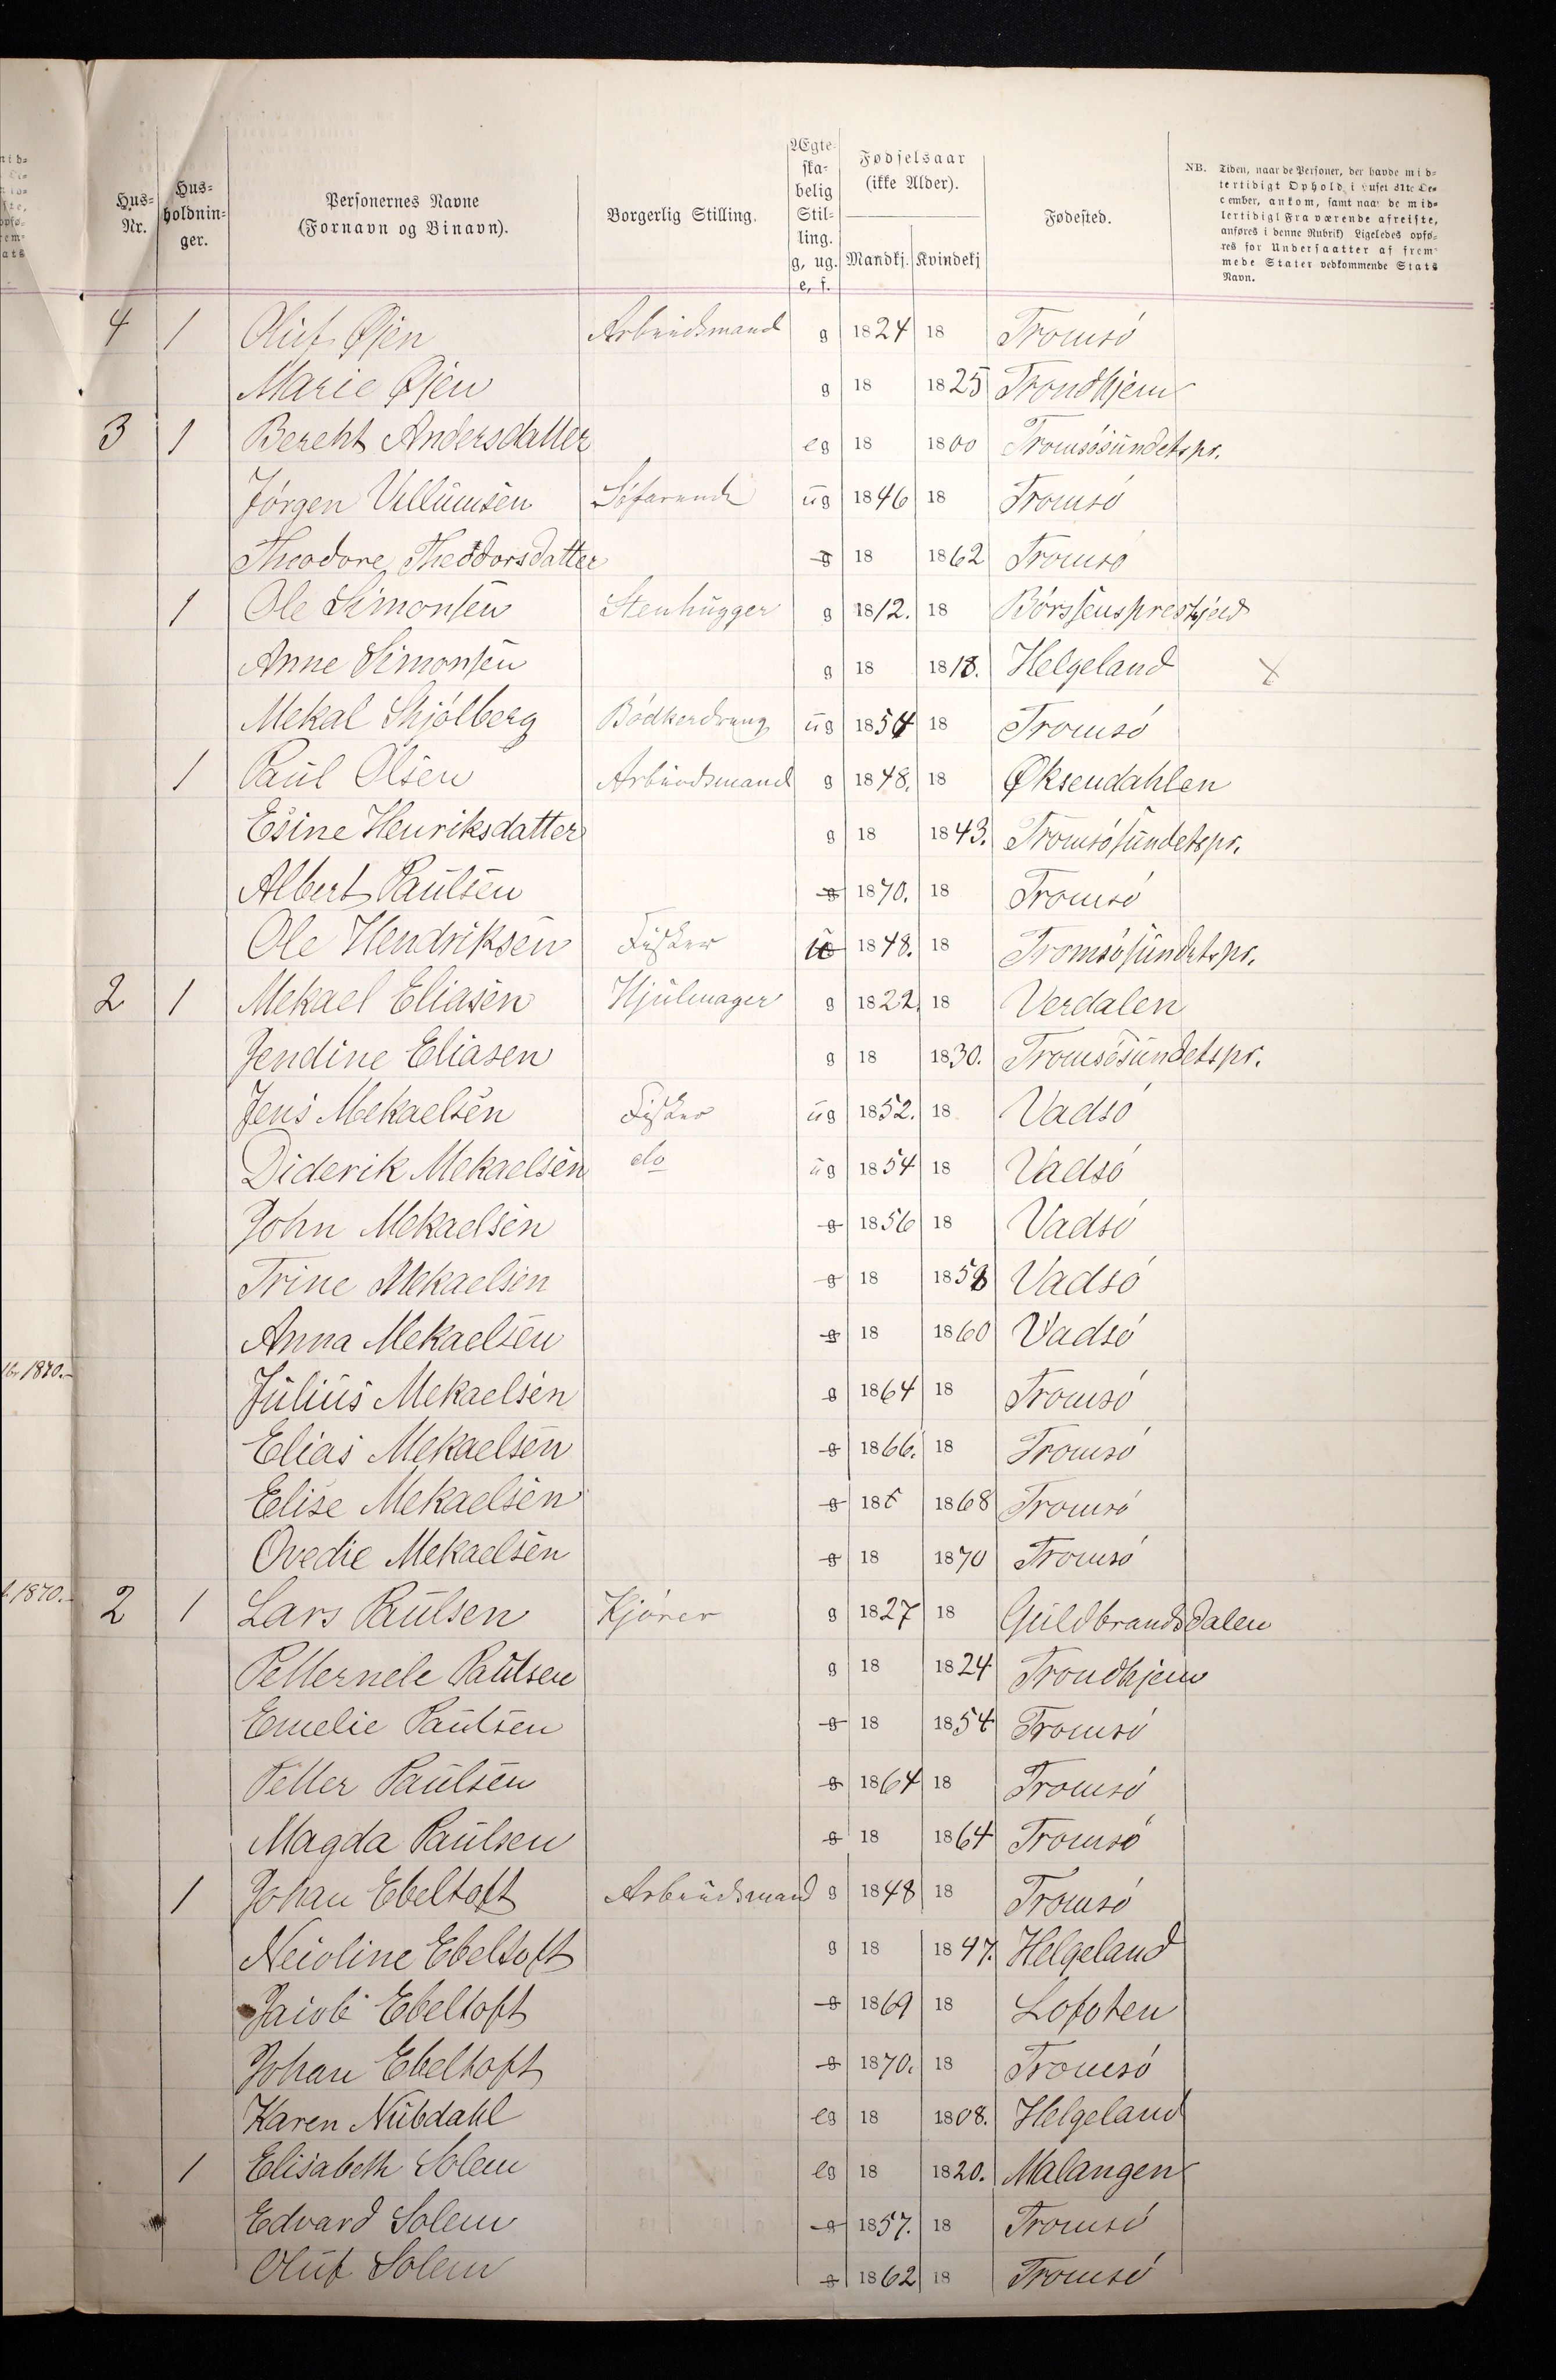 Hus-Nr. | Hus-holdnin-ger. | Personernes Navne (Fornavn og Binavn). | Borgerlig Stilling. | Ægte-ska-belig Stil-ling. g, ug. e, f. | Fødselsaar (ikke Alder). Mandkj. | Kvindekj | Fødested. | NB. Tiden, naar de Personer, der havde mid-
tertidigt Ophold i Huset 31te De-
cember, ankom, samt naar de mid-
lertidigt Fraværende afreiste,
anføres i denne Rubrik) Ligeledes opfø-
res for Undersaatter af frem-
mede Stater vedkommende Stats
Navn.
4 | 1 | Oluf Øjen | Arbeidsmand | g | 1824 | 18 | Tromsö
Marie Øjen | g | 18 | 1825 | Trondhjem
3 | 1 | Bereht Andersdatter | eg | 18 | 1800 | Tromsösundetspr.
Jörgen Villumsen | Söfarende | ug | 1846 | 18 | Tromsö
Theodore Theodorsdatter | g | 18 | 1862 | Tromsö
1 | Ole Simonsen | Stenhugger | g | 1812. | 18 | Börssensprestgjeld
Anne Simonsen | g | 18 | 1818. | Helgeland | x
Mekal Skjölberg | Bödkerdreng | ug | 1854 | 18 | Tromsö
1 | Paul Olsen | Arbeidsmand | g | 1848. | 18 | Øksendahlen
Esine Henriksdatter | g | 18 | 1843. | Tromsösundetspr.
Albert Paulsen | g | 1870. | 18 | Tromsö
Ole Hendriksen | Fisker | u | 1848. | 18 | Tromsösundetspr.
2 | 1 | Mekael Eliasen | Hjulmager | g | 1822. | 18 | Verdalen
Jendine Eliasen | g | 18 | 1830. | Tromsösundetspr.
Jens Mekaelsen | Fisker | ug | 1852. | 18 | Vadsö
Diderik Mekaelsen | do | ug | 1854 | 18 | Vadsö
John Mekaelsen | g | 1856 | 18 | Vadsö
Trine Mekaelsen | g | 18 | 1858 | Vadsö
Anna Mekaelsen | g | 18 | 1860 | Vadsö
1870.
Julius Mekaelsen | g | 1864 | 18 | Tromsö
Elias Mekaelsen | g | 1866. | 18 | Tromsö
Elise Mekaelsen | g | 18 | 1868 | Tromsö
Ovedie Mekaelsen | g | 18 | 1870 | Tromsö
1870.
2 | 1 | Lars Paulsen | Kjörer | g | 1827 | 18 | Guldbrandsdalen
Petternele Paulsen | g | 18 | 1824 | Trondhjem
Emelie Paulsen | g | 18 | 1854 | Tromsö
Petter Paulsen | g | 1864 | 18 | Tromsö
Magda Paulsen | g | 18 | 1864 | Tromsö
1 | Johan Ebeltoft | Arbeidsmand | g | 1848 | 18 | Tromsö
Neioline Ebeltoft | g | 18 | 1847. | Helgeland
Jacob Ebeltoft | g | 1869 | 18 | Lofoten
Johan Ebeltoft | g | 1870. | 18 | Tromsö
Karen Nubdahl | eg | 18 | 1808. | Helgeland
1 | Elisabeth Solem | eg | 18 | 1820. | Malangen
Edvard Solem | g | 1857. | 18 | Tromsö
Oluf Solem | g | 1862 | 18 | Tromsö